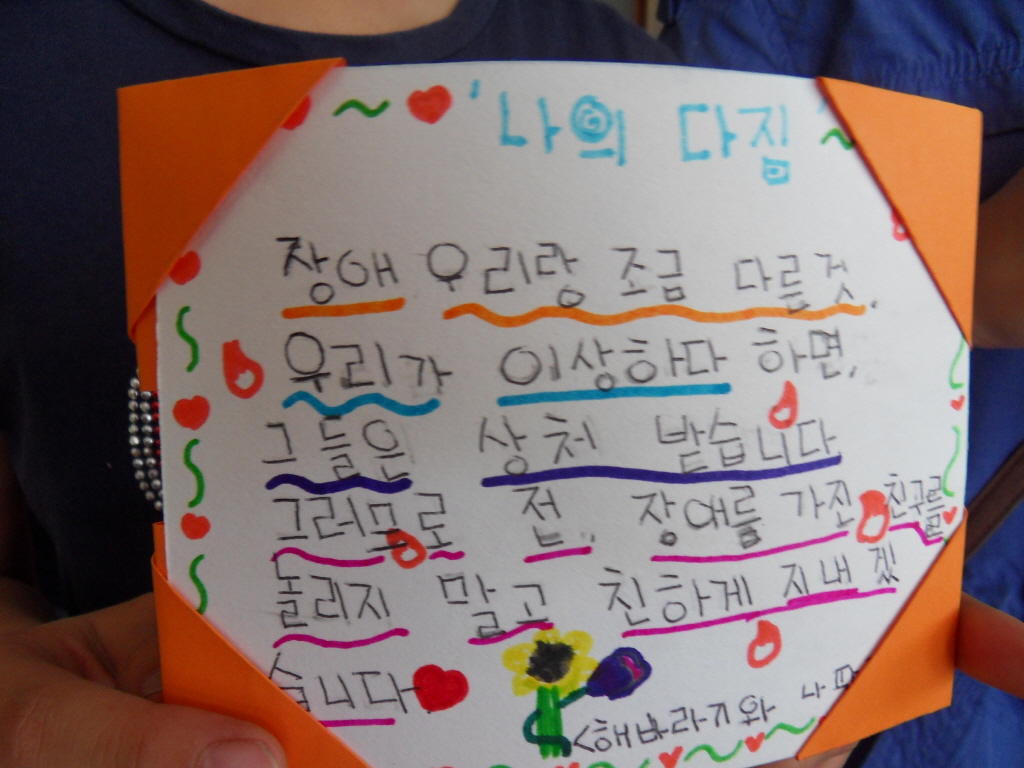 '나의 다짐'
장애 우리랑 조금 다를것.
우리가 이상하다 하면,
그들은 상처 받습니다
그러므로 전. 장애를 가진 친구를
놀리지 말고 친하게 지내겠
습니다
<해바라기와